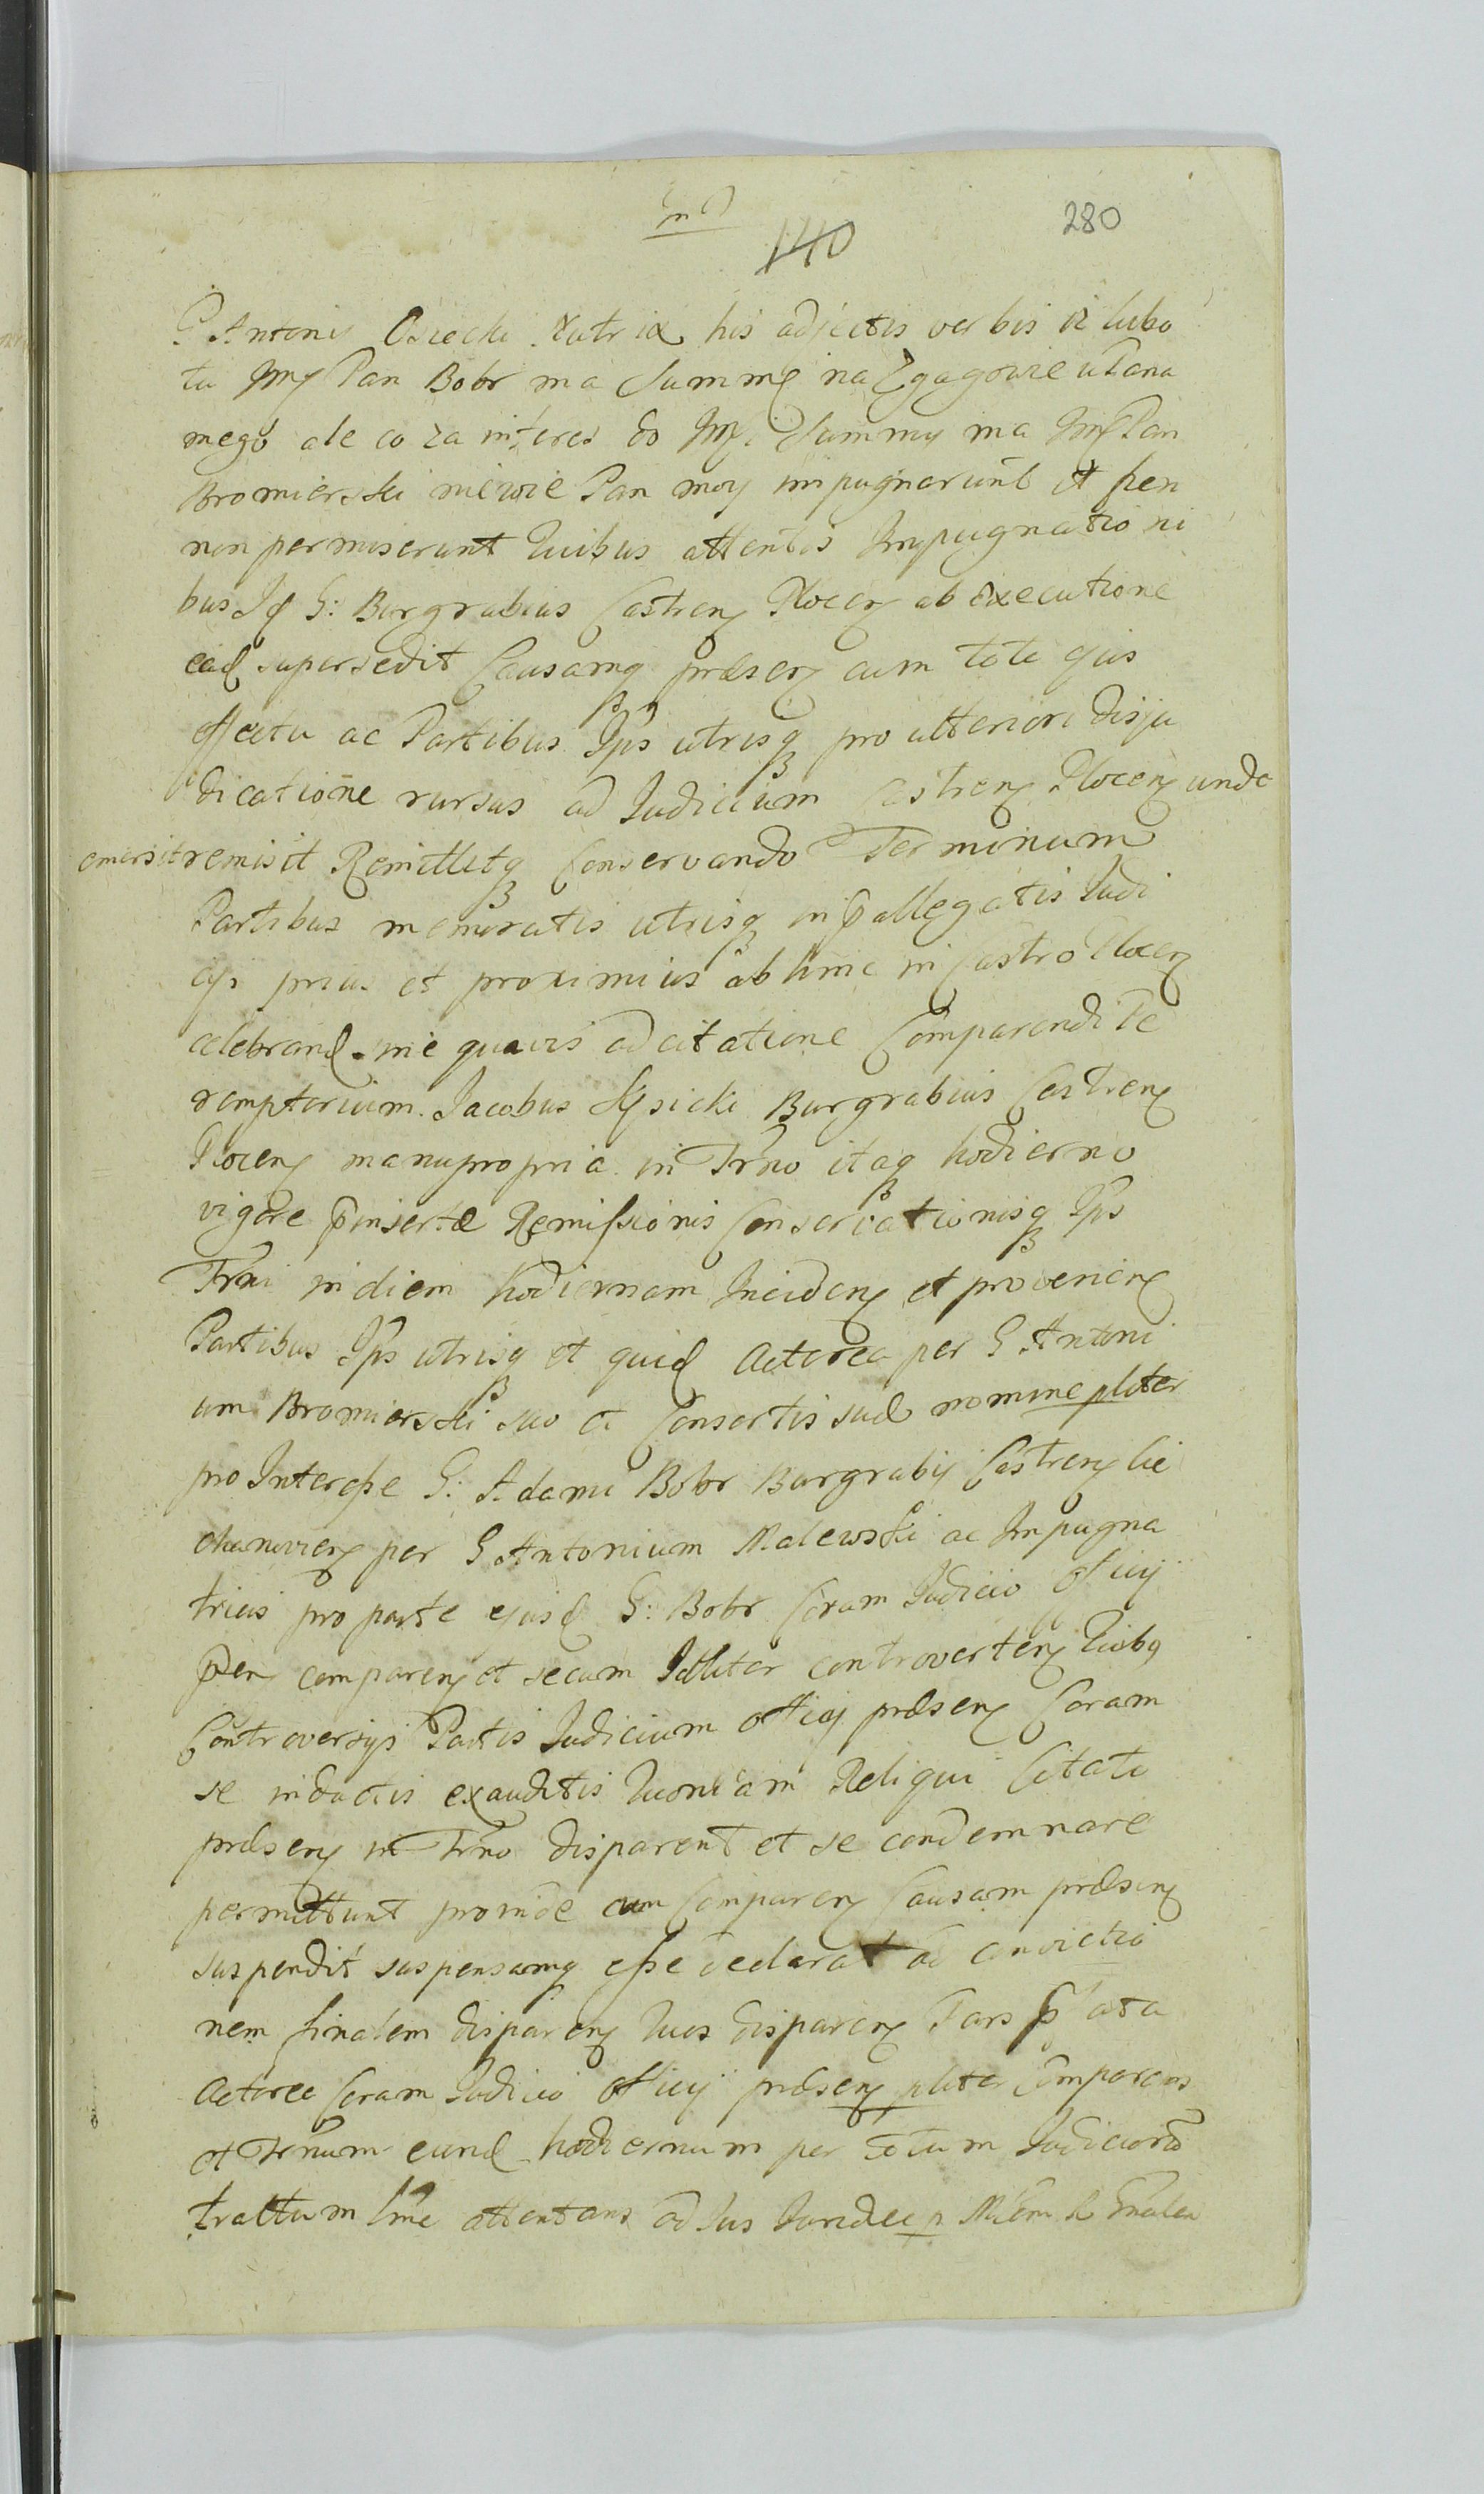 280
140
G. Antoni Osiecki his adjectis verbis iż lubo
tu Jmę Pan Bobr ma Summę na Zgagowie u Pana
mego ale co za interes do Jmę Summy ma Jmę Pan
Bromierski nie wie Pan moy impugnarunt et fieri
non permiserunt Quibus attentis Impugnationi
bus Jd G: Burgrabius Castren Plocen ab executione
ead supersedit Causamq præsen cum toto ejus
effectu ac Partibus Ips utrisq pro ulteriori disju
dicatione rursus ad Judicium Castren Plocen unde
emersit remisit Remittitq Conservando Terminum
Partibus memoratis utrisq in pallegatis Judi
cijs prius et proximius ab hinc in Castro Plocen
celebrand sine quavis adcitatione Comparendi Pe
remptorium. Jacobus Burgrabius Castren
Plocen manu propria in Trno itaq hodierno
vigore pinsertæ Remissionis Conservationisq Ips
Trni in diem hodiernam Inciden et provenien
Partibus Ips utrisq et quid Actorea per G Antoni
um Bromierski suo et Consortis suæ nomine pliter
pro Interesse G: Adami Bobr Burgrabij Castren Cie
chanovien per G Antonium Malewski ac Impugna
tricis pro parte ejusd G: Bobr Coram Judicio Officij
pen comparen et secum controverten Quibq
Controversijs Partis Judicium Officij præsen Coram
se inductis exauditis Quoniam Reliqui Citati
præsen in Trno disparent et se condemnare
permittunt proinde cum Comparen Causam præsen
suspendit suspensamq esse declarat ad convictio
nem finalem disparen Quos disparen Pars p ata
Actorea Coram Judicio Officij præsen pliter Comparens
et Trnum eund hodiernum per totum Judiciorũ
tractum lme attentans ad Jus